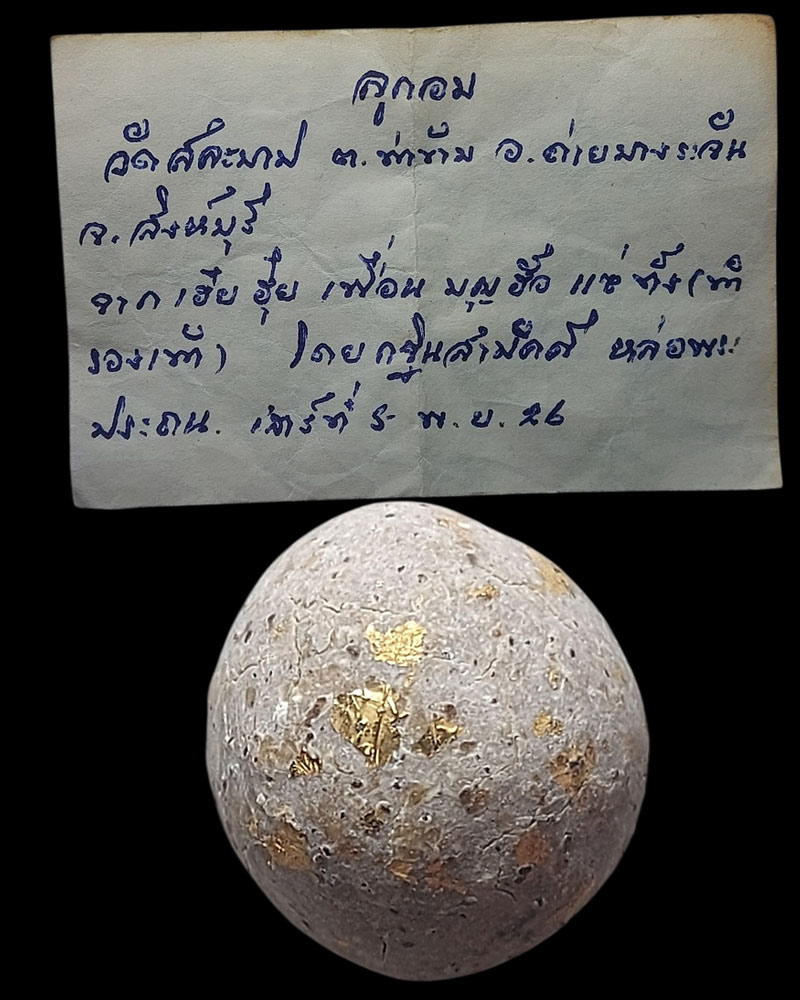 ลูกอม
วัดสละบาป ต.ท่าข้าม อ.ค่ายบางระจัน
จ.สิงห์บุรี
จาก เฮีย ฮุ้ย เพื่อน บุญฮ้อ แซ่ตั้ง (ทำ
รองเท้า) โดย กฐินสามัคคี หล่อพระ
ประธาน. เสาร์ที่ 5 พ.ย. 26